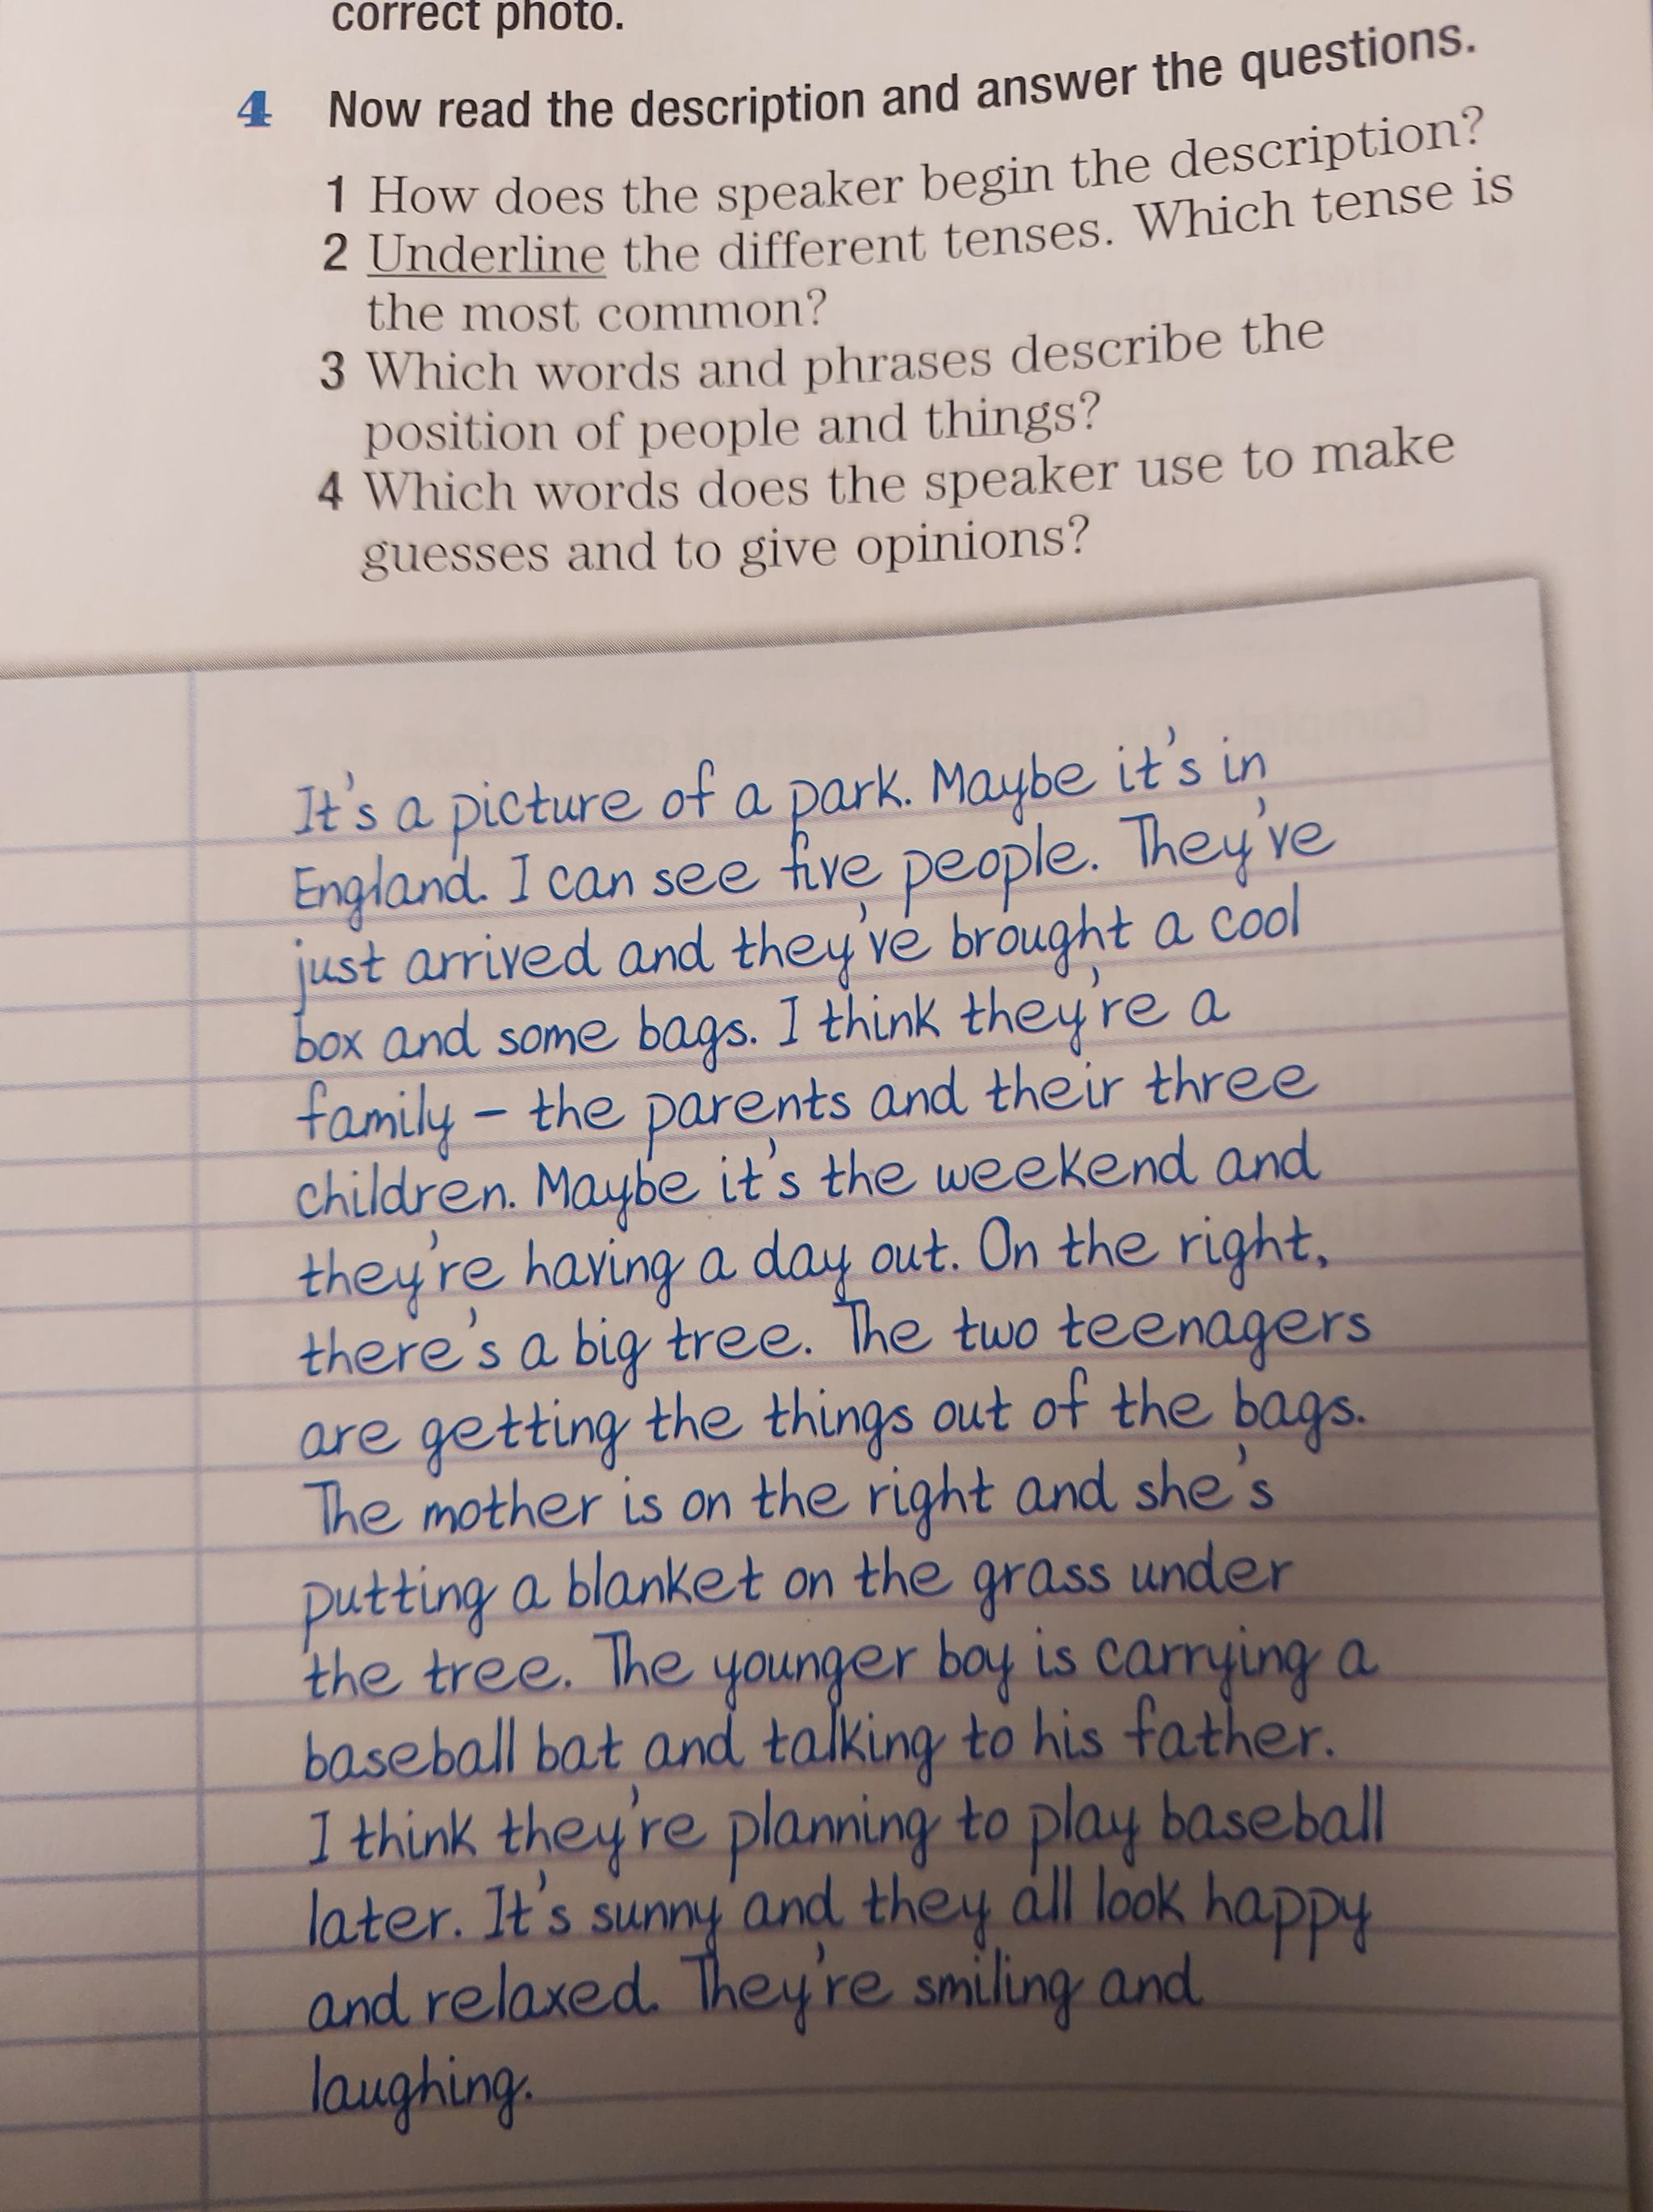 correct photo.
4 Now read the description and answer the questions.
1 How does the speaker begin the description?
2 Underline the different tenses. Which tense is
the most common?
3 Which words and phrases describe the
position of people and things?
4 Which words does the speaker use to make
guesses and to give opinions?
It's a picture of a park. Maybe it's in
England. I can see five people. They've
just arrived and they've brought a cool
box and some bags. I think they're a
family – the parents and their three
children. Maybe it's the weekend and
they're having a day out. On the right,
there's a big tree. The two teenagers
are getting the things out of the bags.
The mother is on the right and she's
putting a blanket on the grass under
the tree. The younger boy is carrying a
baseball bat and talking to his father.
I think they're planning to play baseball
later. It's sunny and they all look happy
and relaxed. They're smiling and
laughing.